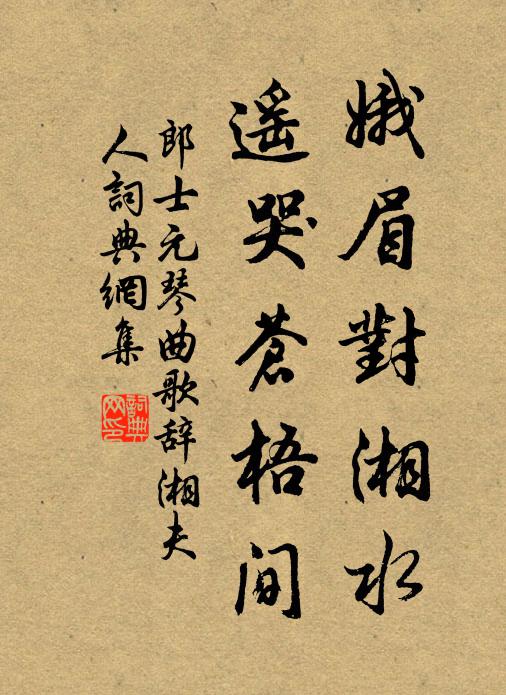 娥眉對湘水
遥哭蒼梧间
郎士元琴曲歌辞湘夫
人詞典網集
詞典
网印